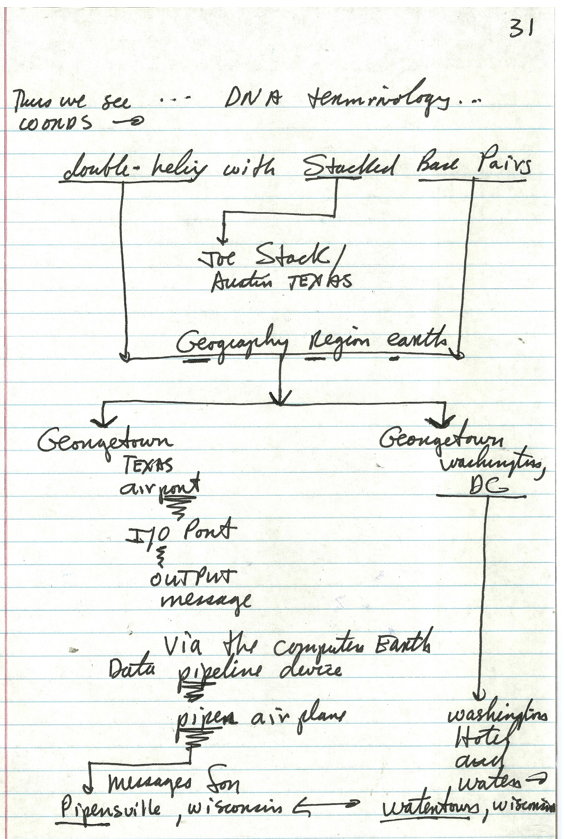 31
Thus we see ... DNA terminology...
words →
double-helix with Stacked Base Pairs
Joe Stack/
Austin TEXAS
Geography Region earth
Georgetown
TEXAS
airport
I/O Port
OUTPUT
message
Georgetown
washington,
DC
Via the computer Earth
Data pipeline device
piper airplane
messages for
Pipersville, wisconsin ↔
washington
Hotel
and
waters →
watertown, wisconsin